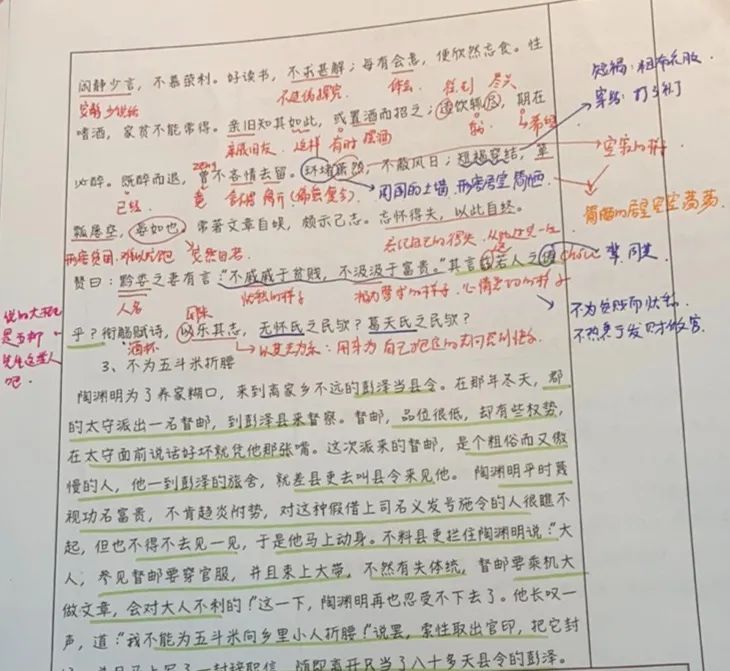 闲静少言，不慕荣利。好读书，不求甚解；每有会意，便欣然忘食。性
安静 少说话
短褐：粗布衣服
穿结：打补丁
嗜酒，家贫不能常得。亲旧知其如此，或置酒而招之；造饮辄尽，期在
亲戚旧友 这样 有时 摆酒 希望
必醉。既醉而退，曾不吝情去留。环堵萧然，不蔽风日；短褐穿结，箪
已经 竟 周围的土墙 形容居室简陋
空寂的样子
简陋的居室空空荡荡
瓢屡空，晏如也。常著文章自娱，颇示己志。忘怀得失，以此自终。
形容贫困 难以吃饱 安然自若 忘记自己的得失
赞曰：黔娄之妻有言："不戚戚于贫贱，不汲汲于富贵。"其言兹若人之俦
人名 忧愁的样子 极力营求的样子、心情急切的样子 chóu 辈，同类
不为贫贱而忧愁
不热衷于发财做官
乎？衔觞赋诗，以乐其志，无怀氏之民欤？葛天氏之民欤？
酒杯
说的大概是五柳先生这类人吧
3、不为五斗米折腰
陶渊明为了养家糊口，来到离家乡不远的彭泽当县令。在那年冬天，郡
的太守派出一名督邮，到彭泽县来督察。督邮，品位很低，却有些权势，
在太守面前说话好坏就凭他那张嘴。这次派来的督邮，是个粗俗而又傲
慢的人，他一到彭泽的旅舍，就差县吏去叫县令来见他。 陶渊明平时蔑
视功名富贵，不肯趋炎附势，对这种假借上司名义发号施令的人很瞧不
起，但也不得不去见一见，于是他马上动身。不料县吏拦住陶渊明说："大
人，参见督邮要穿官服，并且束上大带，不然有失体统，督邮要乘机大
做文章，会对大人不利的！"这一下，陶渊明再也忍受不下去了。他长叹一
声，道："我不能为五斗米向乡里小人折腰！"说罢，索性取出官印，把它封
随即离开只当了八十多天县令的彭泽。